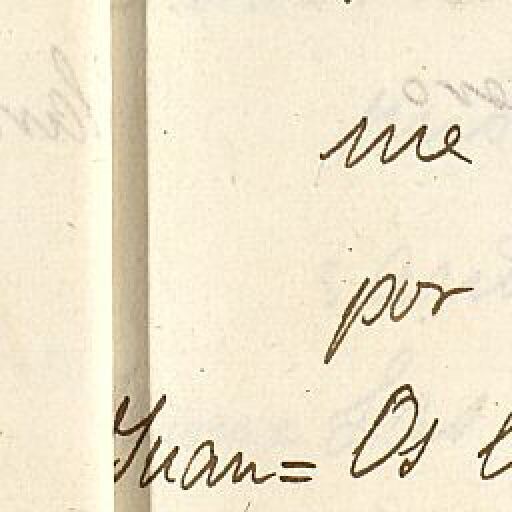 me
por
Juan= Os